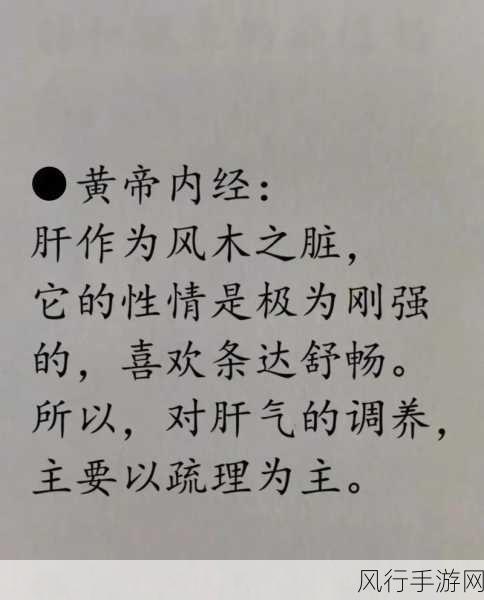 ●黄帝内经：
肝作为风木之脏，
它的性情是极为刚强
的，喜欢条达舒畅。
所以，对肝气的调养，
主要以疏理为主。
风行手游网